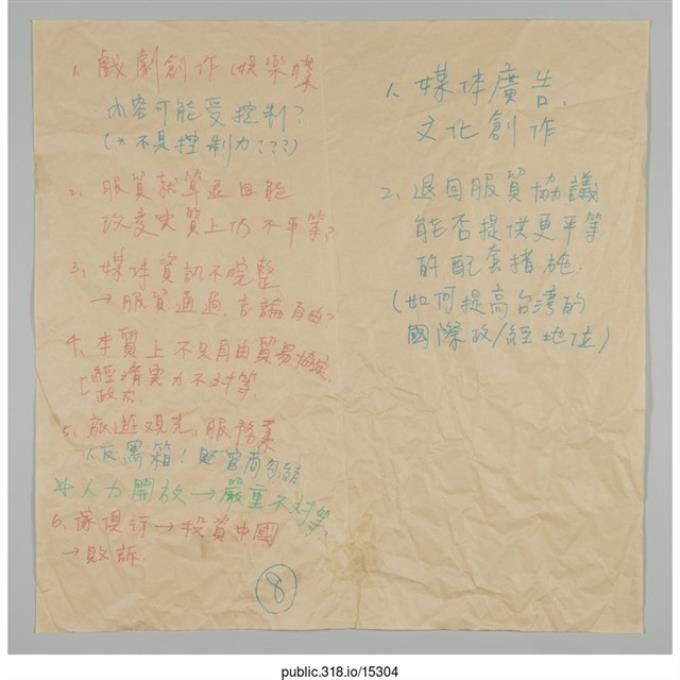 1. 戲劇創作(娛樂業
內容可能受控制?
(*不是控制力???)
2. 服貿就算退回能
改變实質上仍不平等?
3. 媒体資訊不完整
→服貿通過,言論自由?
4. 本質上不是自由貿易協定,
經濟実力不对等
政治
5. 旅遊观光,服務業
反黑箱!
*人力開放→嚴重不対等,
6. 傢俱行→投資中國
→敗訴.
8
1. 媒体廣告、
文化創作
2. 退回服貿協議
能否提供更平等
的配套措施.
(如何提高台湾的
國際政/經地位)
public.318.io/15304